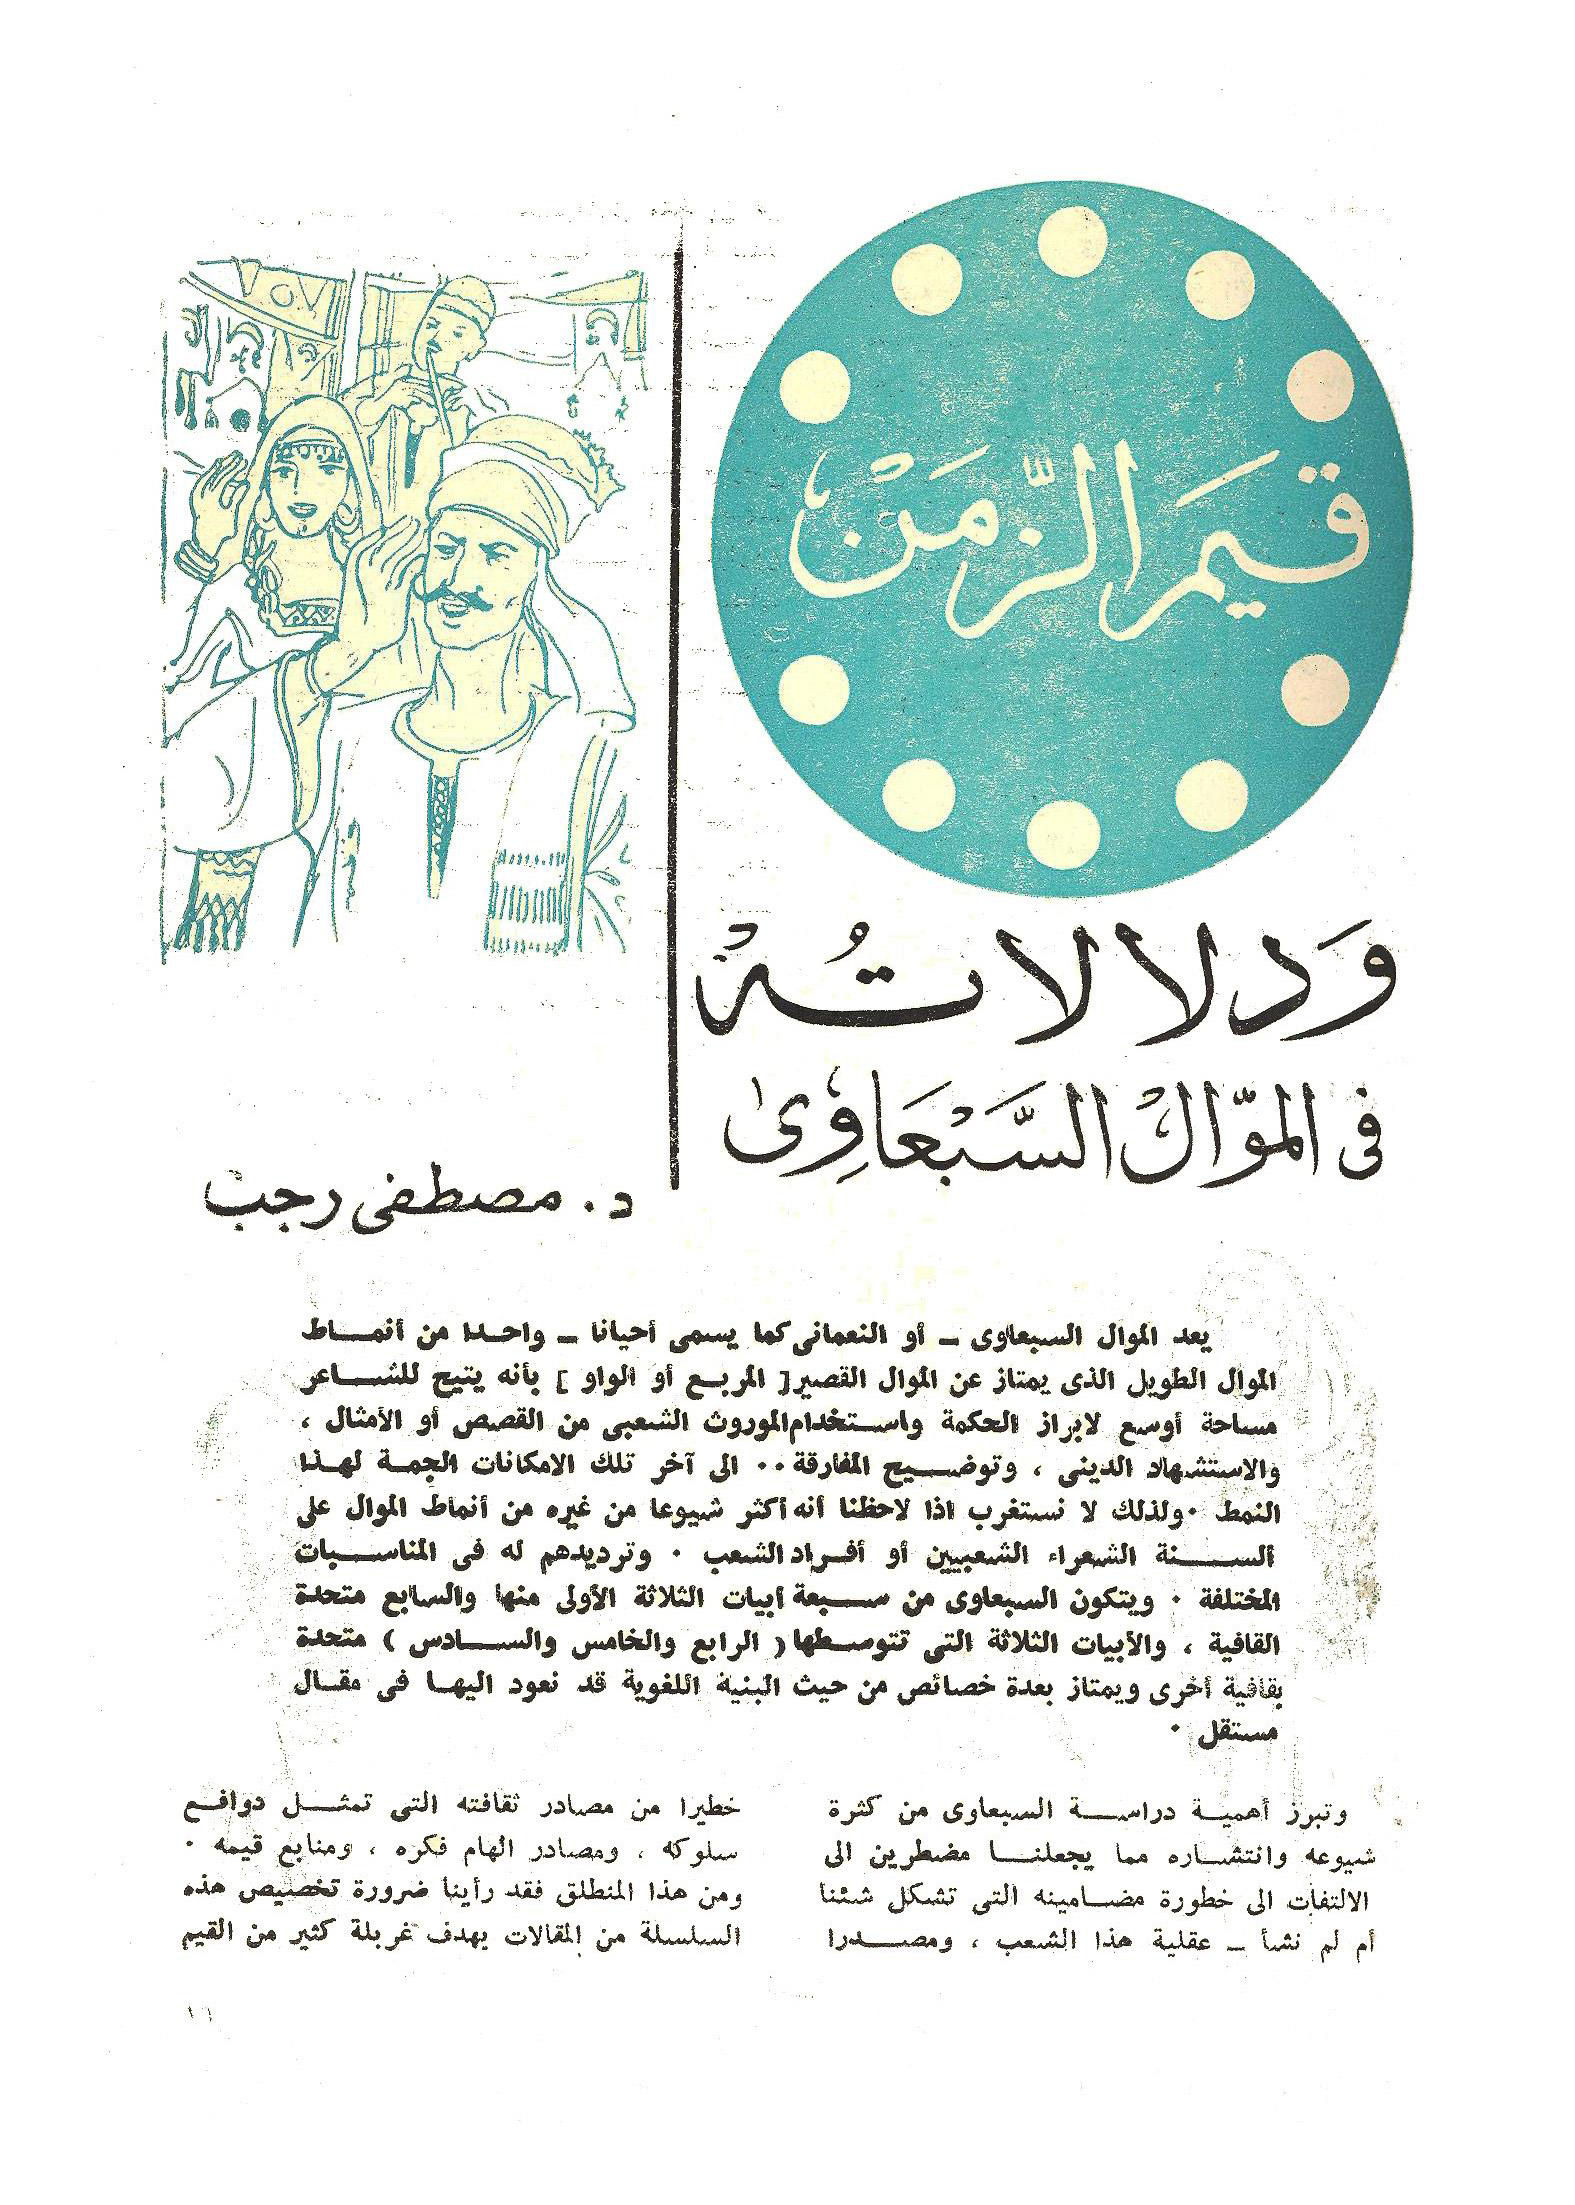 قيم الزمن
ودلالاته
فى الموّال السّبعاوى
د. مصطفى رجب
يعد الموال السبعاوى ـ أو النعمانى كما يسمى أحيانا ـ واحدا من أنماط
الموال الطويل الذى يمتاز عن الموال القصير [ المربع أو الواو ] بأنه يتيح للشاعر
مساحة أوسع لابراز الحكمة واستخدام الموروث الشعبى من القصص أو الأمثال ،
والاستشهاد الدينى ، وتوضيح المفارقة ٠٠ الى آخر تلك الامكانات الجمة لهذا
النمط ٠ ولذلك لا نستغرب اذا لاحظنا أنه أكثر شيوعا من غيره من أنماط الموال على
ألسنة الشعراء الشعبيين أو أفراد الشعب ٠ وترديدهم له فى المناسبات
المختلفة ٠ ويتكون السبعاوى من سبعة أبيات الثلاثة الأولى منها والسابع متحدة
القافية ، والأبيات الثلاثة التى تتوسطها ( الرابع والخامس والسادس ) متحدة
بقافية أخرى ويمتاز بعدة خصائص من حيث البنية اللغوية قد نعود اليها فى مقال
مستقل ٠
وتبرز أهمية دراسة السبعاوى من كثرة
شيوعه وانتشاره مما يجعلنا مضطرين الى
الالتفات الى خطورة مضامينه التى تشكل شئنا
أم لم نشأ ـ عقلية هذا الشعب ، ومصدرا
خطيرا من مصادر ثقافته التى تمثل دوافع
سلوكه ، ومصادر الهام فكره ، ومنابع قيمه ٠
ومن هذا المنطلق فقد رأينا ضرورة تخصيص هذه
السلسلة من المقالات بهدف غربلة كثير من القيم